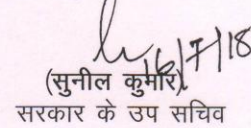 16/7/18
(सुनील कुमार)
सरकार के उप सचिव